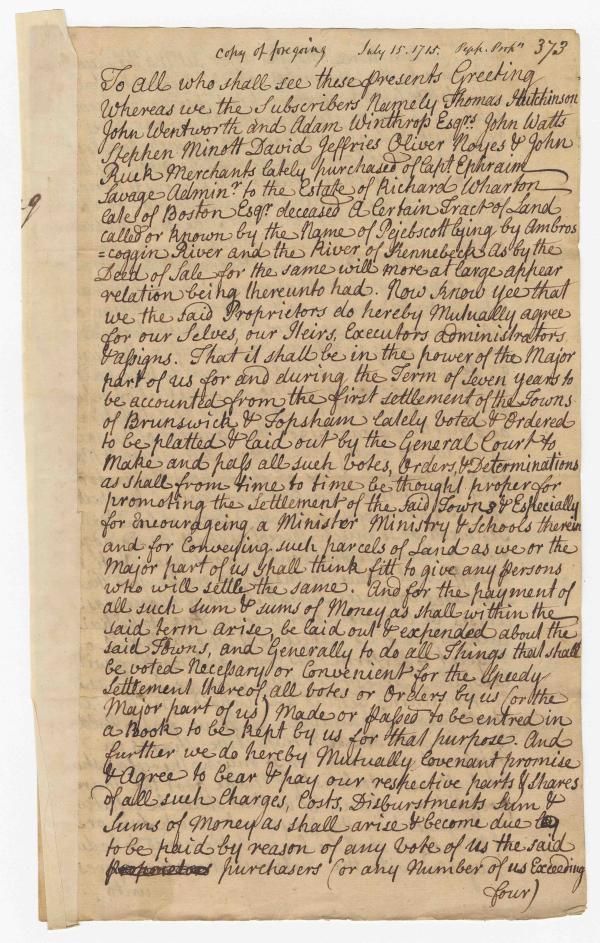 copy of foregoing July 15. 1715. Peph. Prop.rs 373
To all who shall see these presents Greeting
Whereas we the Subscribers Namely Thomas Hutchinson
John Wentworth and Adam Winthrop Esqrs. John Watts
Stephen Minott David Jeffries Oliver Noyes & John
Ruck Merchants lately purchased of Capt. Ephraim
Savage Adminr. to the Estate of Richard Wharton
late of Boston Esqr. deceased A Certain Tract of Land
called or known by the Name of Pejebscott lying by Ambros
=coggin River and the River of Kennebeck as by the
Deed of Sale for the same will more at large appear
relation being thereunto had. Now know yee that
we the said Proprietors do hereby Mutually agree
for our Selves, our Heirs, Executors administrators
& assigns. That it shall be in the power of the Major
part of us for and during the Term of Seven years to
be accounted from the first settlement of the Towns
of Brunswick & Topsham lately voted & Ordered
to be platted & laid out by the General Court to
Make and pass all such votes, Orders, & Determinations
as shall from time to time be thought proper for
promoting the Settlement of the said Towns & Especially
for Encourageing a Minister Ministry & Schools therein
and for Conveying such parcels of Land as we or the
Major part of us shall think fitt to give any persons
who will settle the same. And for the payment of
all such sum & sums of Money as shall within the
said term arise, be laid out & expended about the
said Towns, and Generally to do all Things that shall
be voted Necessary or Convenient for the Speedy
Settlement thereof, all votes or Orders by us (or the
Major part of us) Made or passed to be entred in
a Book to be kept by us for that purpose. And
further we do hereby Mutually Covenant promise
& Agree to bear & pay our respective parts & shares
of all such Charges, Costs, Disburstments Sum &
Sums of Money as shall arise & become due
to be paid by reason of any vote of us the said
proprietors purchasers (or any Number of us Exceeding
four)